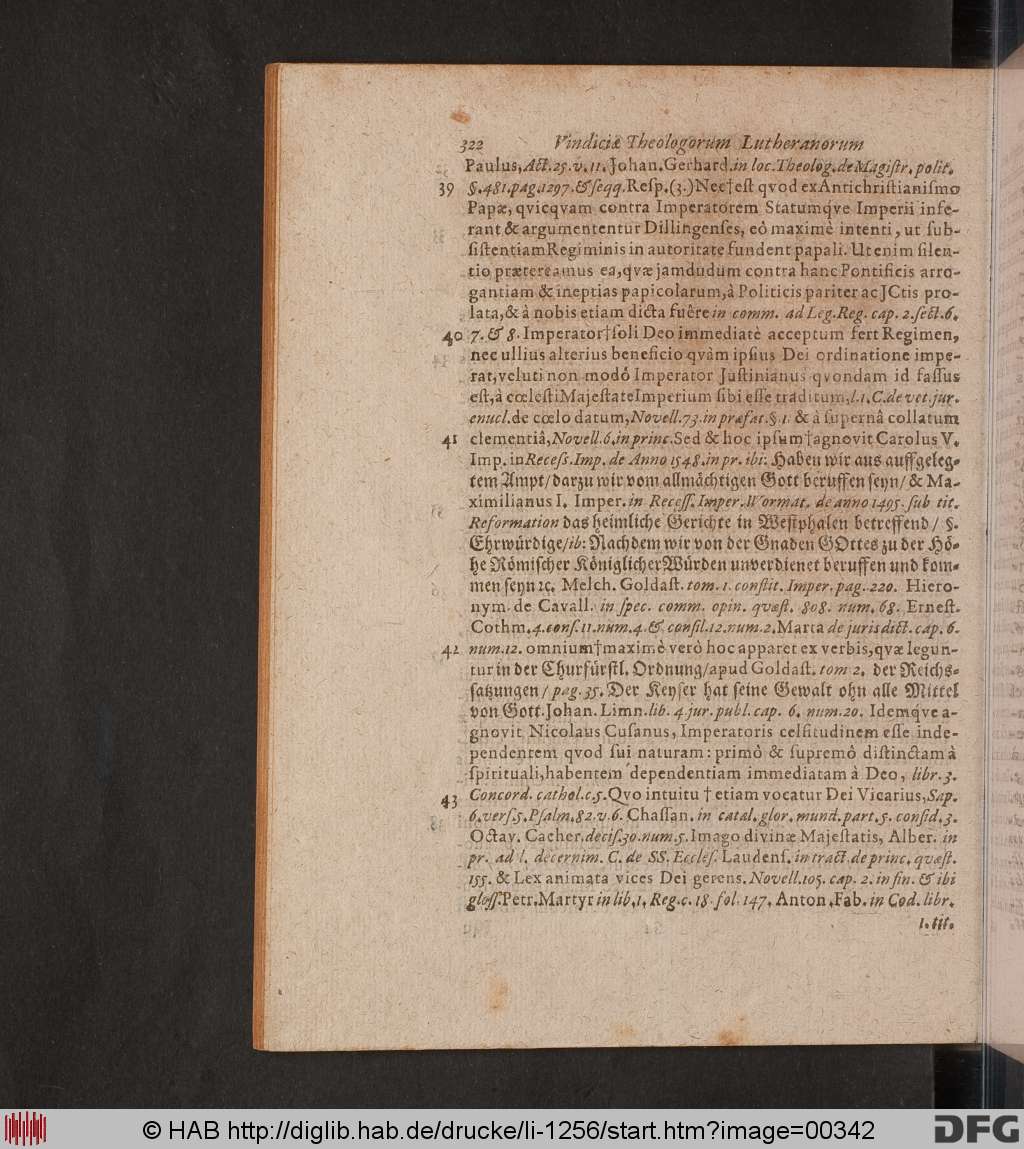 322 Vindiciæ Theologorum Lutheranorum
Paulus, Act. 25. v. 11. Johan. Gerhard. in loc. Theolog. de Magiſtr. polit.
39 §. 481. pag. 1297. & ſeqq. Reſp. (3.) Nec † eſt qvod ex Antichriſtianiſmo
Papæ, qvicqvam contra Imperatorem Statumq́ve Imperii infe-
rant & argumententur Dillingenſes, eò maximè intenti, ut ſub-
ſiſtentiam Regiminis in autoritate fundent papali. Ut enim ſilen-
tio prætereamus ea, qvæ jamdudum contra hanc Pontificis arro-
gantiam & ineptias papicolarum, à Politicis pariter ac JCtis pro-
lata, & à nobis etiam dicta fuêre in comm. ad Leg. Reg. cap. 2. ſect. 6.
40 7. & 8. Imperator † ſoli Deo immediatè acceptum fert Regimen,
nec ullius alterius beneficio qvàm ipſius Dei ordinatione impe-
rat, veluti non modò Imperator Juſtinianus qvondam id faſſus
eſt, à cœleſti Majeſtate Imperium ſibi eſſe traditum, l. 1. C. de vet. jur.
enucl. de cœlo datum, Novell. 73. in præfat. §. 1. & à ſupernâ collatum
41 clementiâ, Novell. 6. in princ. Sed & hoc ipſum † agnovit Carolus V.
Imp. in Receſs. Imp. de Anno 1548. in pr. ibi: Haben wir aus auffgeleg-
tem Ampt/ darzu wir vom allmächtigen Gott beruffen ſeyn/ & Ma-
ximilianus I. Imper. in Receſſ. Imper. Wormat. de anno 1495. ſub tit.
Reformation das heimliche Gerichte in Weſtphalen betreffend/ §.
Ehrwürdige/ ib: Nachdem wir von der Gnaden GOttes zu der Hö-
he Römiſcher Königlicher Würden unverdienet beruffen und kom-
men ſeyn ꝛc. Melch. Goldaſt. tom. 1. conſtit. Imper. pag. 220. Hiero-
nym. de Cavall. in ſpec. comm. opin. quæſt. 808. num. 68. Erneſt.
Cothm. 4. conſ. 11. num. 4. & conſil. 12. num. 2. Marta de jurisdict. cap. 6.
42 num. 12. omnium † maximè verò hoc apparet ex verbis, qvæ legun-
tur in der Churfürſtl. Ordnung/ apud Goldaſt. tom 2. der Reichs-
ſatzungen/ pag. 35. Der Keyſer hat ſeine Gewalt ohn alle Mittel
von Gott. Johan. Limn. lib. 4. jur. publ. cap. 6. num. 20. Idemq́ve a-
gnovit Nicolaus Cuſanus, Imperatoris celſitudinem eſſe inde-
pendentem qvod ſui naturam: primò & ſupremò diſtinctam à
ſpirituali, habentem dependentiam immediatam à Deo, libr. 3.
43 Concord. cathol. c. 5. Qvo intuitu † etiam vocatur Dei Vicarius, Sap.
6. verſ. 5. Pſalm. 82. v. 6. Chaſſan. in catal. glor. mund. part. 5. conſid. 3.
Octav. Cacher. deciſ. 30. num. 5. Imago divinæ Majeſtatis, Alber. in
pr. ad l. decernim. C. de SS. Eccleſ. Laudenſ. in tract. de princ. quæſt.
155. & Lex animata vices Dei gerens. Novell. 105. cap. 2. in fin. & ibi
gloſſ. Petr. Martyr in lib. 1. Reg. c. 18. fol. 147. Anton. Fab. in Cod. libr.
1. tit.
© HAB http://diglib.hab.de/drucke/li-1256/start.htm?image=00342
DFG